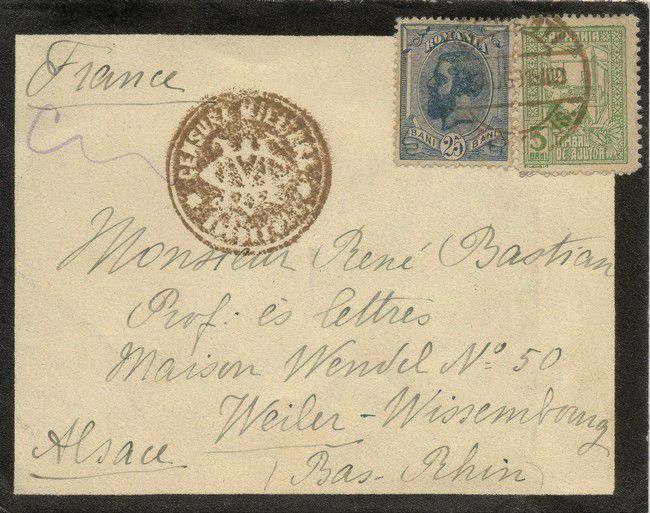 France
ROMANIA
BANI 25 BANI
5 BANI
DE AJUTOR
Monsieur René Bastian
Prof. ès lettres
Maison Wendel Nº 50
Weiler-Wissembourg
Alsace
(Bas-Rhin)